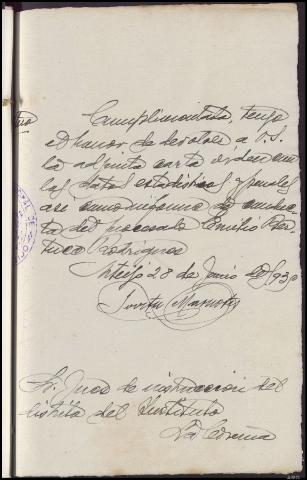 Cumplimentada, tengo
el honor de devolver a V.S.
la adjunta carta orden con
los datos estadisticos y penales
asi como informe de conducta
del procesado Emilio
Rodriguez
Arteijo 28 de Junio de 1930
Sr. Juez de instruccion del
distrito del Instituto
La Coruña